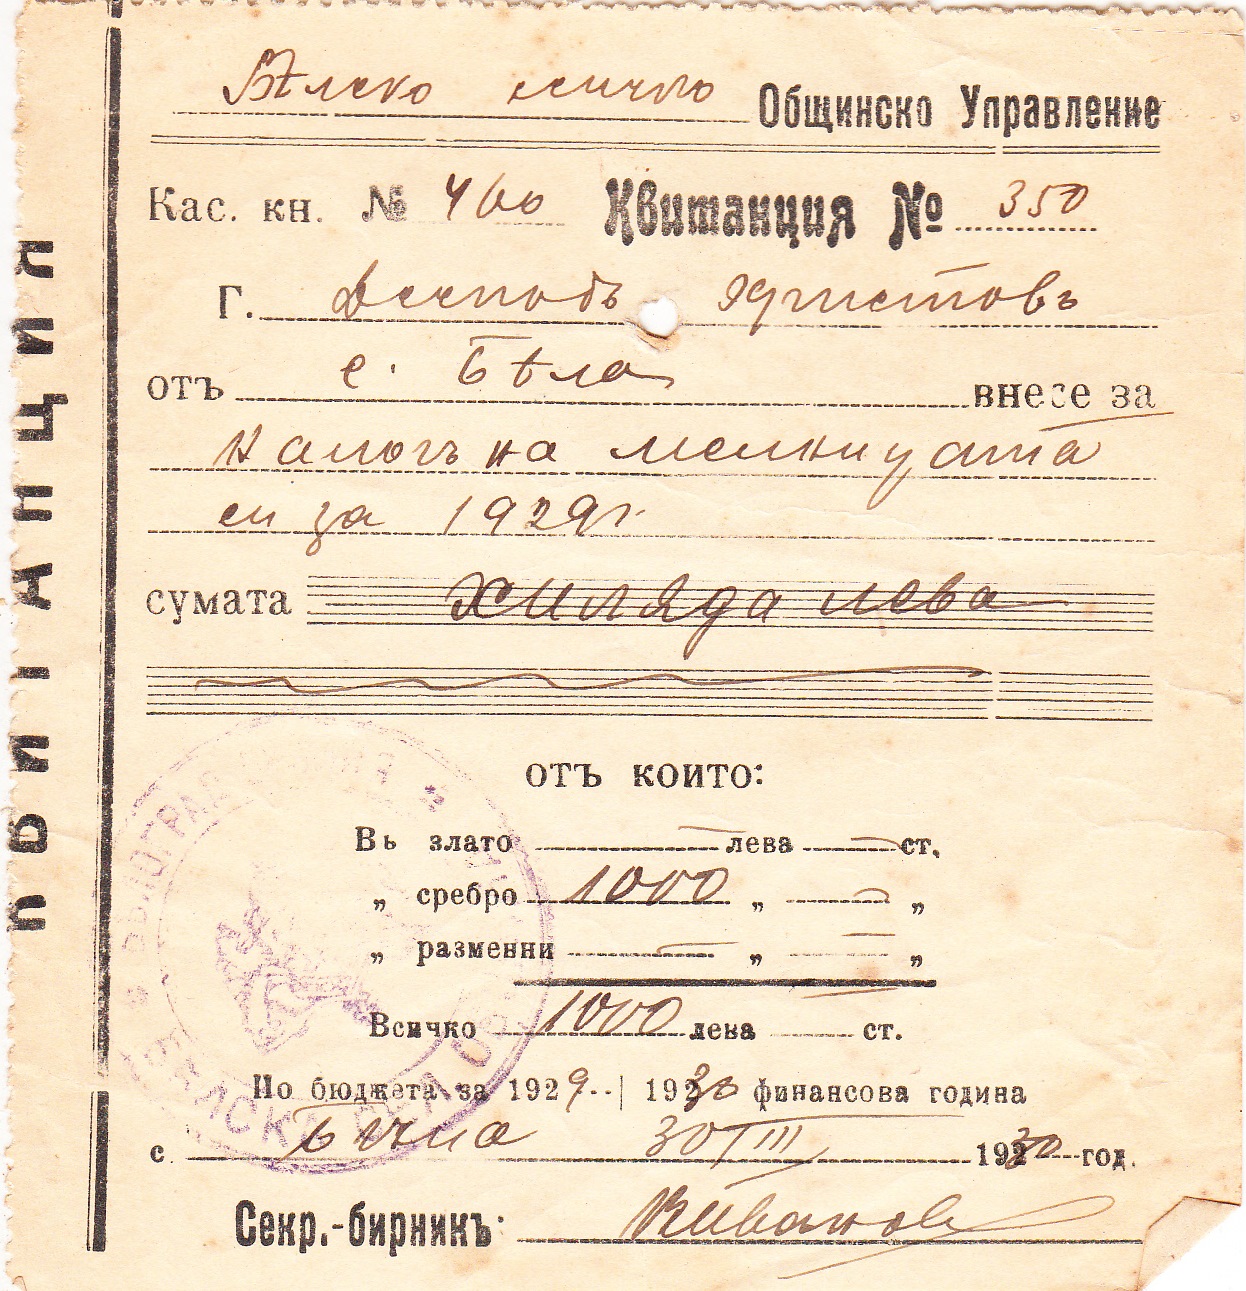 КВИТАНЦИЯ
Бѣлско Общинско Управление
Кас. кн. № 400 Квитанция № 350
Г. Деспотъ Христовъ
отъ с. Бѣла внесе за
налогъ на мелницата
си за 1929 г.
сумата хиляда лева
отъ които:
Въ злато — лева — ст.
„ сребро 1000 „ — „
„ разменни — „ — „
Всичко 1000 лева ст.
По бюджета за 1929 | 1930 финансова година
с. Бѣла 30/III 1930 год.
Секр.-бирникъ: Иванов